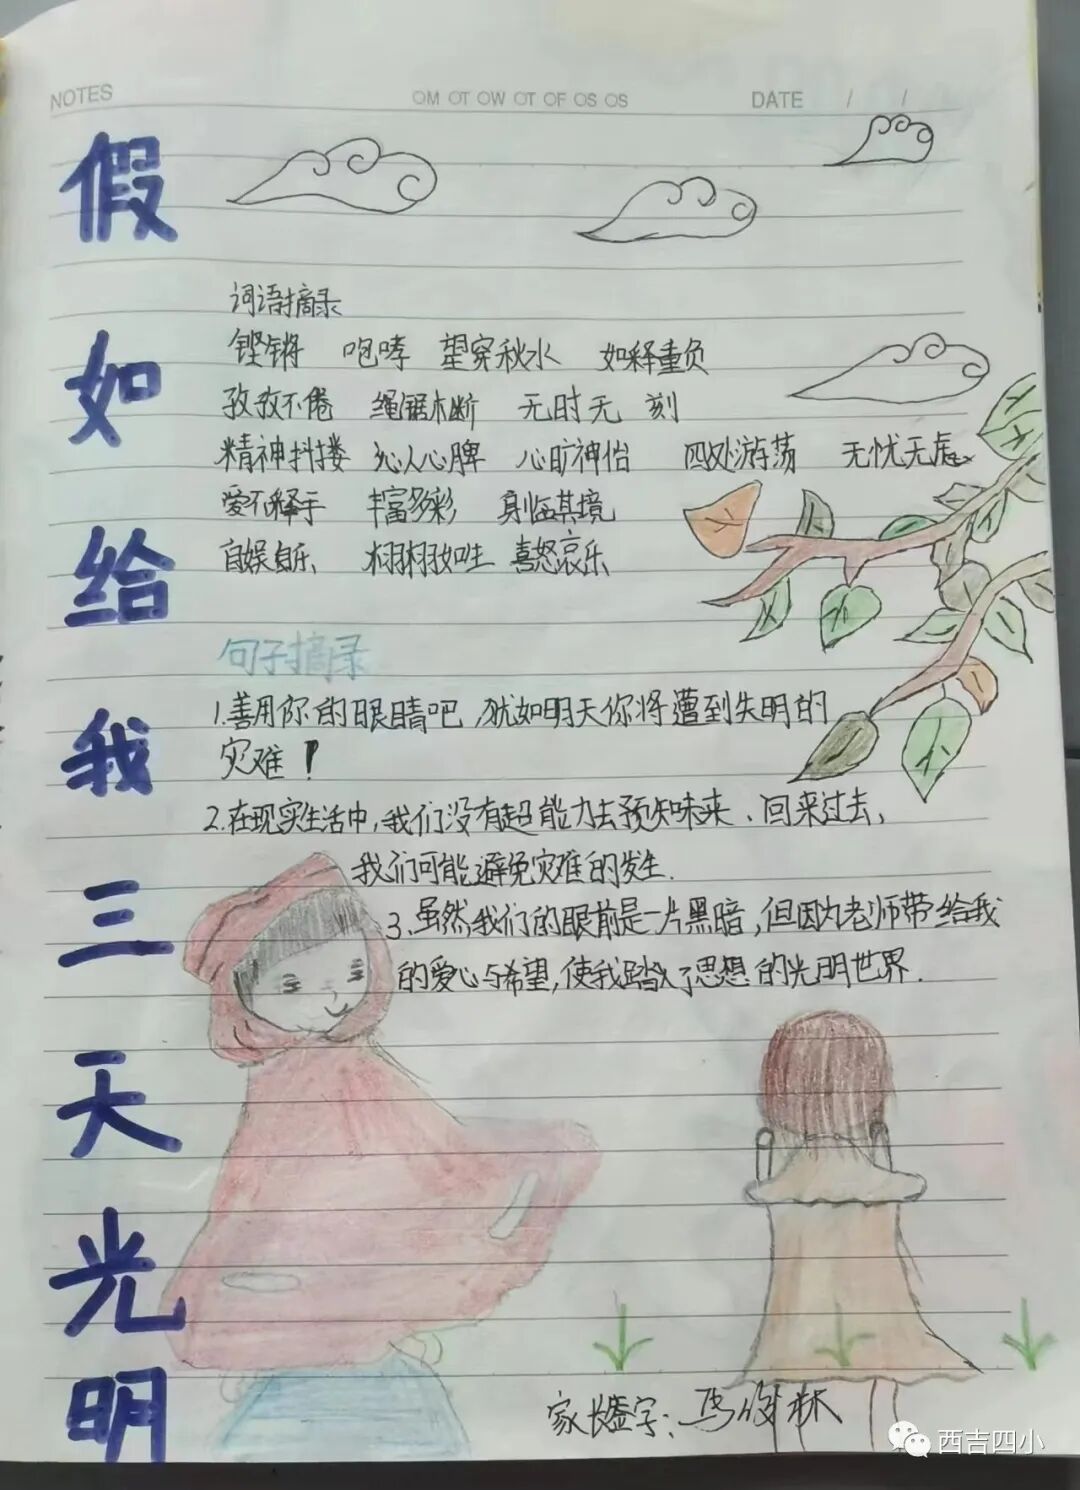 NOTES
OM OT OW OT OF OS OS
DATE / /
假如给我三天光明
词语摘录
铿锵 咆哮 望穿秋水 如释重负
孜孜不倦 绳锯木断 无时无刻
精神抖擞 沁人心脾 心旷神怡 四处游荡 无忧无虑
爱不释手 丰富多彩 身临其境
自娱自乐 栩栩如生 喜怒哀乐
句子摘录
1.善用你的眼睛吧,犹如明天你将遭到失明的
灾难!
2.在现实生活中,我们没有超能力去预知味来、回来过去,
我们可能避免灾难的发生.
3.虽然我们的眼前是一片黑暗,但因为老师带给我
的爱心与希望,使我踏入了思想的光明世界.
家长签字:马俊林
西吉四小